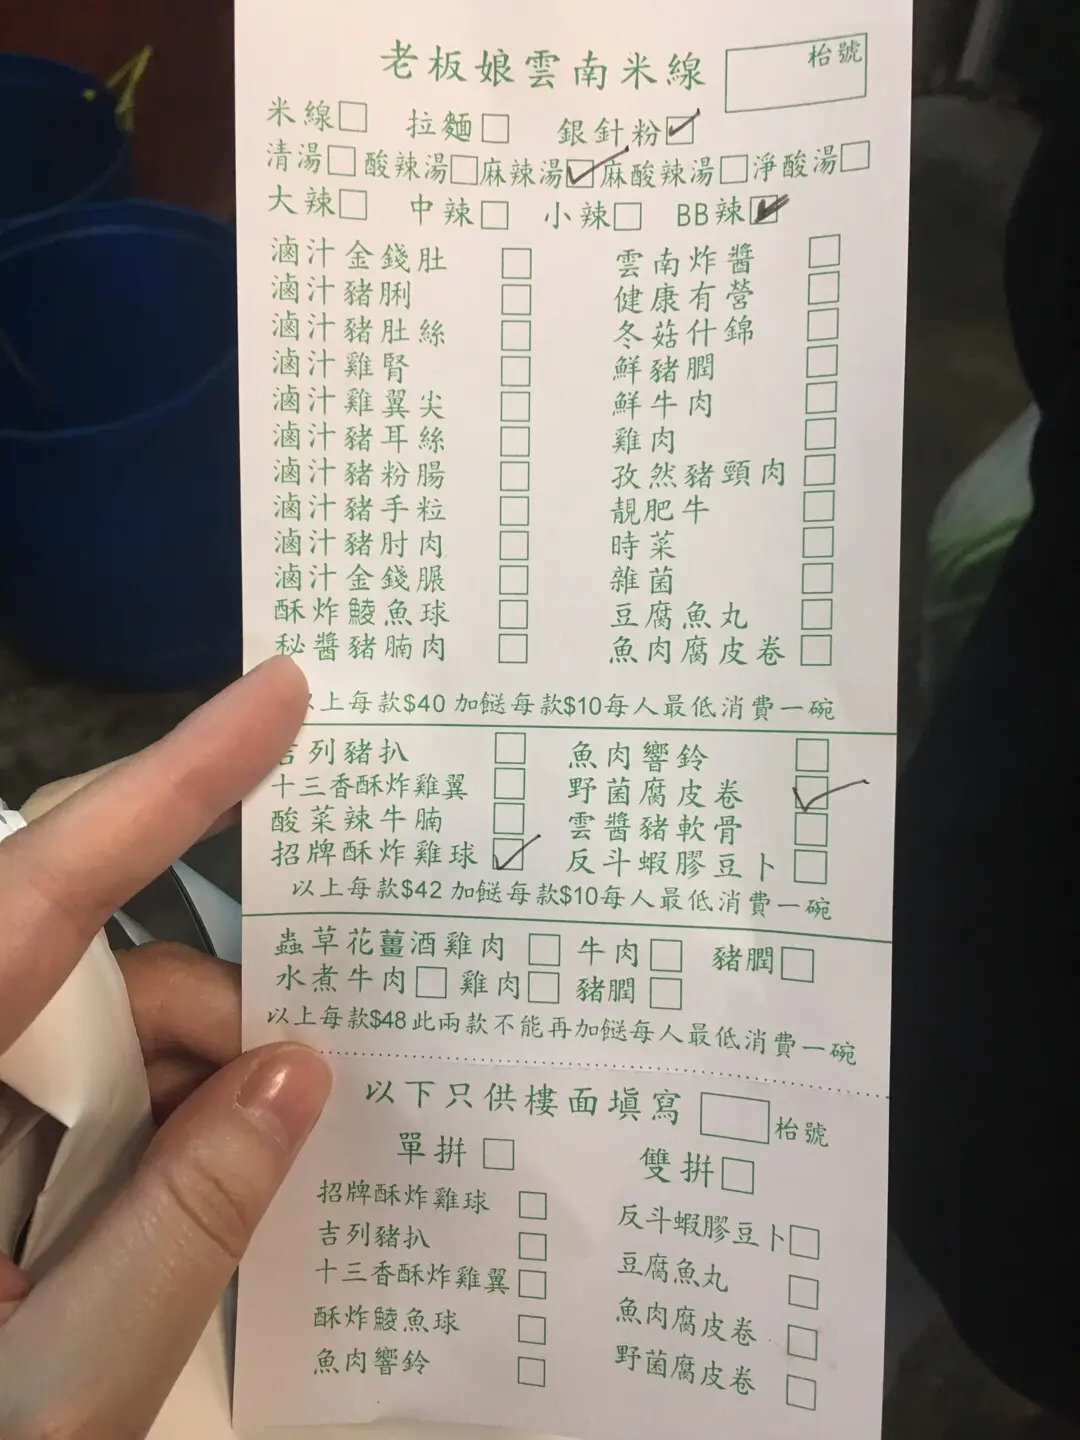 老板娘雲南米線 枱號
米線 拉麵 銀針粉
清湯 酸辣湯 麻辣湯 麻酸辣湯 淨酸湯
大辣 中辣 小辣 BB辣
滷汁金錢肚 雲南炸醬
滷汁豬脷 健康有營
滷汁豬肚絲 冬菇什錦
滷汁雞腎 鮮豬膶
滷汁雞翼尖 鮮牛肉
滷汁豬耳絲 雞肉
滷汁豬粉腸 孜然豬頸肉
滷汁豬手粒 靚肥牛
滷汁豬肘肉 時菜
滷汁金錢𦟌 雜菌
酥炸鯪魚球 豆腐魚丸
秘醬豬腩肉 魚肉腐皮卷
以上每款$40 加餸每款$10每人最低消費一碗
吉列豬扒 魚肉響鈴
十三香酥炸雞翼 野菌腐皮卷
酸菜辣牛腩 雲醬豬軟骨
招牌酥炸雞球 反斗蝦膠豆卜
以上每款$42 加餸每款$10每人最低消費一碗
蟲草花薑酒雞肉 牛肉 豬膶
水煮牛肉 雞肉 豬膶
以上每款$48此兩款不能再加餸每人最低消費一碗
以下只供樓面填寫 枱號
單拼 雙拼
招牌酥炸雞球 反斗蝦膠豆卜
吉列豬扒 豆腐魚丸
十三香酥炸雞翼 魚肉腐皮卷
酥炸鯪魚球 野菌腐皮卷
魚肉響鈴